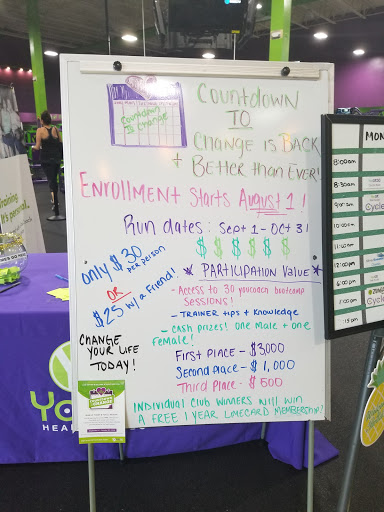 Countdown
Is Change
COUNTDOWN
TO
CHANGE IS BACK
+ BETTER THAN EVER!
ENROLLMENT STARTS August 1!
Run dates: Sept 1 - Oct 31
only $30
per person
OR
$25 w/a Friend!
$ $ $ $ $ $
* PARTICIPATION VALUE *
- Access to 30 youcoach bootcamp
SESSIONS!
- TRAINER tips + knowledge
- Cash prizes! One Male + one
Female!
CHANGE
YOUR LIFE
TODAY!
First Place - $3,000
Second place - $1,000
Third Place - $500
Individual Club Winners will win
A FREE 1 YEAR LIMECARD MEMBERSHIP!
MON
8:00am
8:30am
Cycle
12:00pm
raining
it's personal.
YO
HEA